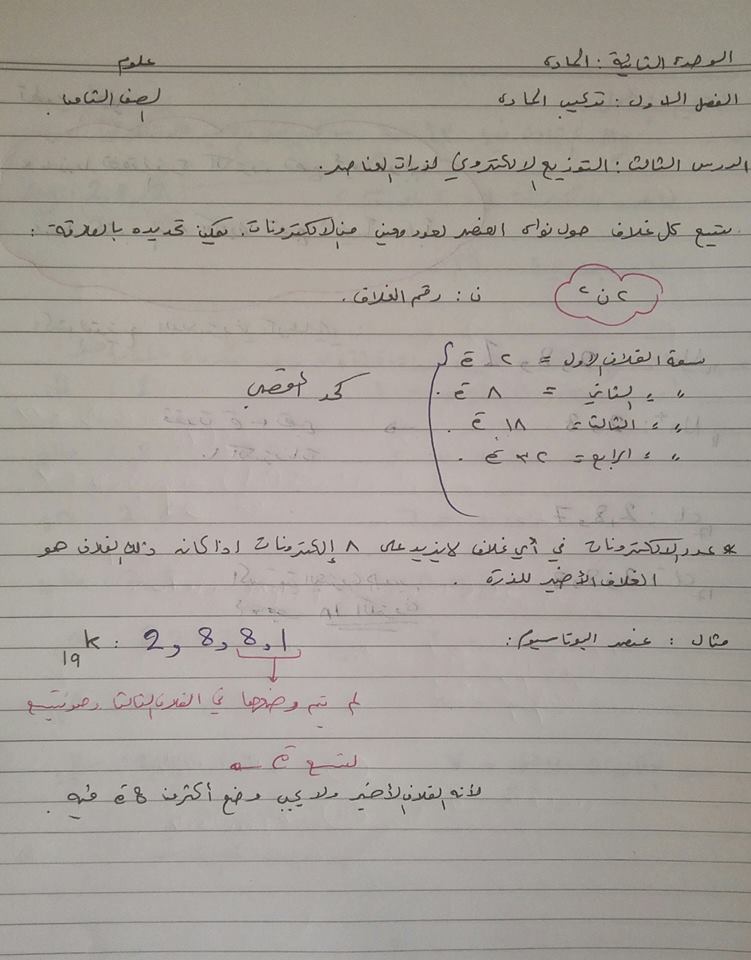 الوحدة الثانية : المادة علوم
الفصل الاول : تركيب المادة الصف الثامن
الدرس الثالث : التوزيع الإلكتروني لذرات العناصر .
يتسع كل غلاف حول نواة العنصر لعدد معين من الالكترونات . يمكن تحديده بالعلاقة :
٢ن٢ ن : رقم الغلاف .
سعة الغلاف الاول = ٢ ē
〃 〃 الثاني = ٨ ē . كحد أقصى
〃 〃 الثالث = ١٨ ē .
〃 〃 الرابع = ٣٢ ē .
* عدد الالكترونات في أي غلاف لا يزيد على ٨ إلكترونات اذا كان ذلك الغلاف هو
الغلاف الأخير للذرة .
مثال : عنصر البوتاسيوم : 19K : 2, 8, 8, 1
لم يتم وضعها في الغلاف الثالث وهو يتسع
لأنه الغلاف الأخير ولا يجب وضع أكثر من 8 ē فيه .